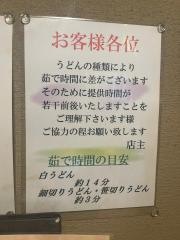 お客様各位
うどんの種類により
茹で時間に差がございます
そのために提供時間が
若干前後いたしますことを
ご理解下さいます様
ご協力の程お願い致します
店主
茹で時間の目安
白うどん
約14分
細切りうどん・笹切りうどん
約3分